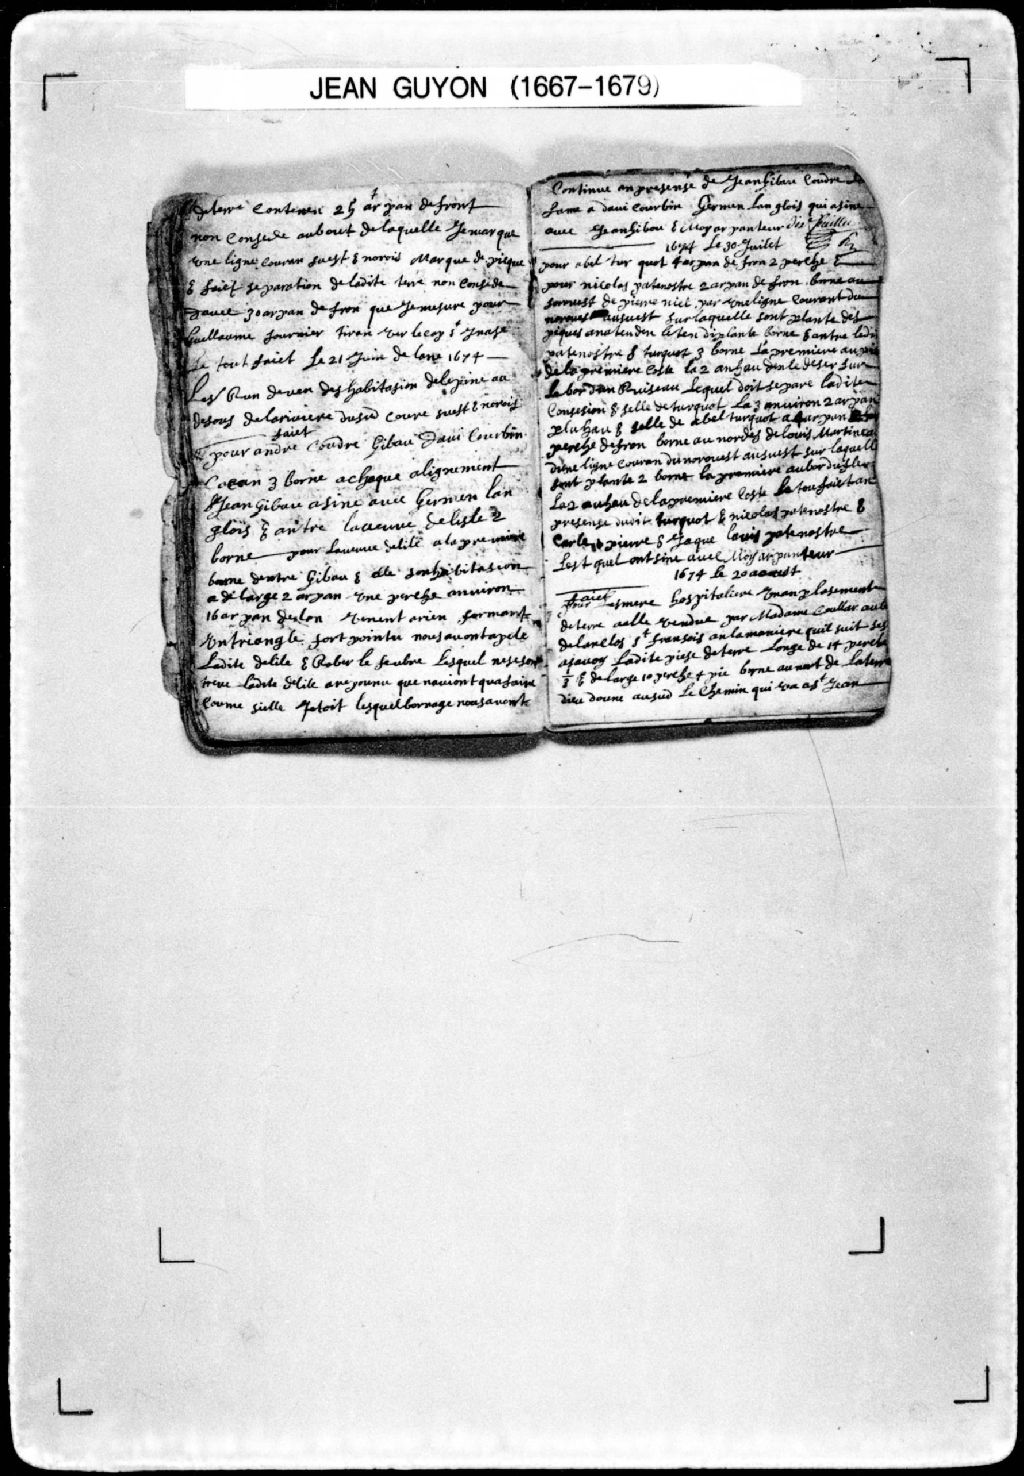 JEAN GUYON (1667-1679)
de terre contenen 25 arpan de front
non consede au bout de laquelle Je marque
une ligne couran suest & norois Marque de pieque
& faict separation de ladite terre non consede
davec 30 arpan de fron que Je mesure pour
Guillaume fournier tiran sur le coy st Jnase
Le tout faict Le 21 Juin de lane 1674
Les Run de ven des habitasion delepine au
desous de la riviere dusud coure suest & norois
faict
pour andre Coudre Gibau Davi Courbin
Cacan 3 borne achaque alignement
Jean Gibau a sine avec Germen lan
glois & antre la veuve delisle 2
borne pour la veuve delile a la premiere
borne dentre Gibau & elle son habitasion
a de large 2 arpan une perche anviron
16 arpan de lon venent arien formant
un triangle fort pointu nous avont apele
Ladite delile & Rober le feubre Lesquel nese son
treve ladite delile areponnu que naviont qua faire
comme sielle y etoit lesquel bornage nous avont
Continue an presense de Jean Gibau Coudre
fame a davi Courbin Germen Lan glois qui a sine
avec Jean Gibau & Moy arpanteur
1674 Le 30 Juilet
pour abel turquot 4 arpan de fron 2 perche &
pour nicolas patenostre 2 arpan de fron borne au
surouest de pierre niel par une ligne courant du
norouest au suest sur laquelle sont plante des
piques anatenden leten diplante borne & antre ledit
patenostre & turquot 3 borne La premiere au pie
de la premiere coste la 2 anhau den le deser sur
le bor dun Ruiseau Lequel doit separe ladite
Consesion & selle de turquot La 3 anviron 2 arpan
plu hau & selle de abel turquot a 4 arpan
perche de fron borne au nordes de louis Martineau
dune ligne couran du norouest au suest sur laquelle
sont plante 2 borne la premiere au bor du
La 2 anhau de la premiere coste Le tou faict an
presense dudit turquot & nicolas patenostre &
Carle pierre & Jaque louis patenostre
Lest quel ont sine avec Moy arpanteur
1674 le 20 aoust
faict
pour Les mere hospitaliere un anplasement
de terre a elle vendue par Madame Coullar
de lanclos st fransois an la maniere quil suit
asavoy Ladite piese de terre Longe de 14 perche
1/2 & de large 10 perche 4 pie borne au nort de La terre
dieu doune au sud Le Chemin qui va a st Jean